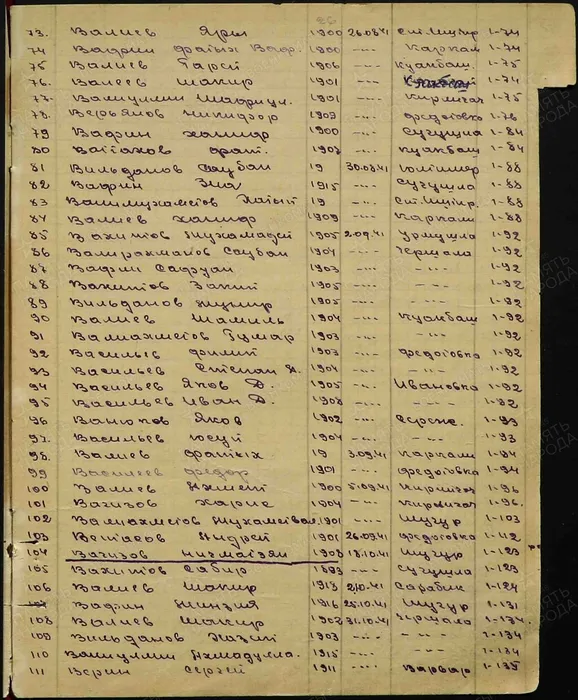 96
73. Валиев Ярми 1900 26.08.41 Ст.Шугур 1-74
74 Вафин Фатых Ваф. 1900 -"- Каркали 1-74
75 Валиев Гарей 1906 -"- Куакбаш. 1-75
76. Валеев Шакир 1901 -"- Куакбаш 1-74
77. Валиуллин 1901 -"- Кирлигач 1-75
78. Верьялов Никифор 1903 -"- Федотовка 1-76
79 Вафин 1900 -"- Сугушла 1-84
80 Ваттахов Фат. 1902 -"- Куакбаш 1-84
81 Вильданов Саубан 19 30.08.41 Юлтимер 1-88
82 Вафин 1915 -"- Сугушла 1-88
83 Валимухаметов 19 -"- Ст.Шугур. 1-88
84 Валиев 1909 -"- Каркали 1-88
85 Вахитов Мухамадей 1905 2.09.41 Урмушла 1-92
86 Валирахманов Саубан 1904 -"- Чершила 1-92
87 Вафин Сафуан 1903 -"- -"- 1-92
88 Вахитов Закий 1905 -"- -"- 1-92
89 Вильданов Мунир 1905 -"- -"- 1-92
90 Валиев Шамиль 1904 -"- Куакбаш 1-92
91 Валиахметов Гумар 1903 -"- -"- 1-92
92 Васильев Филип 1903 -"- Федотовка 1-92
93 Васильев Степан Д. 1904 -"- -"- 1-92
94 Васильев Яков Д. 1905 -"- Ивановка 1-92
95 Васильев Иван Д. 1908 -"- -"- 1-92
96 Ванюков Яков 1902 -"- 1-93
97. Васильев 1904 -"- -"- 1-93
98. Валиев Фатых 19 3.09.41 Каркали 1-94
99 Василеев Федор 1901 -"- Федотовка 1-94
100 Валиев Ахмет 1900 5.09.41 Кирлигач 1-96
101 Вагизов Харис 1904 -"- Кирлигач 1-96
102 Валиахметов 1901 -"- Шугур 1-103
103 Андрей 1901 26.09.41 Федотовка 1-112
104 Вагизов Низмотзян 1908 18.10.41 Шугур 1-123
105 Вахитов Сабир 1893 -"- Сугушла 1-123
106 Валиев Шакир 1913 2.10.41 Сарабик 1-124
107 Вафин 1916 25.10.41 Шугур 1-131
108 Валиев Шакир 1902 31.10.41 Чершила 1-134.
109 Вильданов Назип 1903 -"- -"- 1-134.
110 Валиуллин Ахмадулла. 1915 -"- -"- 1-134
111 Верин Сергей 1911 -"- Варвар 1-135